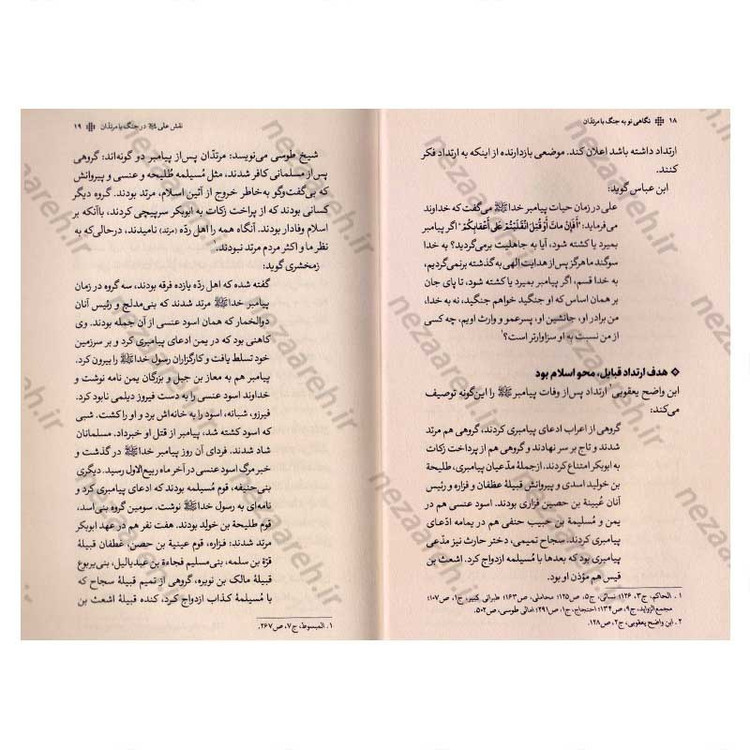 ۱۸ نگاهی نو به جنگ با مرتدّان
ارتداد داشته باشد اعلان کند. موضعی بازدارنده از اینکه به ارتداد فکر
کنند.
ابن عباس گوید:
علی در زمان حیات پیامبر خدا ﷺ می‌گفت که خداوند
می‌فرماید: «أَفَإِن مَّاتَ أَوْ قُتِلَ انقَلَبْتُمْ عَلَى أَعْقَابِكُمْ» اگر پیامبر
بمیرد یا کشته شود، آیا به جاهلیت برمی‌گردید؟ به خدا
سوگند ما هرگز پس از هدایت الهی به گذشته برنمی‌گردیم،
به خدا قسم، اگر پیامبر بمیرد یا کشته شود، تا پای جان
بر همان اساس که او جنگید خواهم جنگید، نه به خدا،
من برادر او، جانشین او، پسرعمو و وارث اویم، چه کسی
از من نسبت به او سزاوارتر است؟۱
هدف ارتداد قبایل، محو اسلام بود
ابن واضح یعقوبی۲ ارتداد پس از وفات پیامبر ﷺ را این‌گونه توصیف
می‌کند:
گروهی از اعراب ادعای پیامبری کردند، گروهی هم مرتد
شدند و تاج بر سر نهادند و گروهی هم از پرداخت زکات
به ابوبکر امتناع کردند. ازجملهٔ مدّعیان پیامبری، طلیحة
بن خولید اسدی و پیروانش قبیلهٔ غطفان و فزاره و رئیس
آنان عُیینة بن حصین فزاری بودند. اسود عنسی هم در
یمن و مُسیلمة بن حبیب حنفی هم در یمامه ادّعای
پیامبری کردند. سجاح تمیمی، دختر حارث نیز مدّعی
پیامبری بود که بعدها با مسیلمه ازدواج کرد. اشعث بن
قیس هم مؤذن او بود.
۱ . الحاکم، ج۳، ۱۲۶؛ نسائی، ج۵، ص۱۲۵؛ محاملی، ص۱۶۳؛ طبرانی کبیر، ج۱، ص۱۰۷؛
مجمع الزواید، ج۹، ص۱۳۴؛ احتجاج، ج۱، ص۲۹۱؛ امالی طوسی، ص۵۰۲.
۲ . ابن واضح یعقوبی، ج۲، ص۱۲۸.
نقش علی در جنگ با مرتدّان ۱۹
شیخ طوسی می‌نویسد: مرتدّان پس از پیامبر دو گونه‌اند: گروهی
پس از مسلمانی کافر شدند، مثل مُسیلمه طُلیحه و عنسی و پیروانش
که بی‌گفت‌وگو به‌خاطر خروج از آئین اسلام، مرتد بودند. گروه دیگر
کسانی بودند که از پراخت زکات به ابوبکر سرپیچی کردند، باآنکه بر
اسلام وفادار بودند. آنگاه همه را اهل ردّه (مرتد) نامیدند، درحالی‌که به
نظر ما و اکثر مردم مرتد نبودند.۱
زمخشری گوید:
گفته شده که اهل ردّه یازده فرقه بودند، سه گروه در زمان
پیامبر خدا ﷺ مرتد شدند که بنی‌مدلج و رئیس آنان
ذوالخمار که همان اسود عنسی از آن جمله بودند. وی
کاهنی بود که در یمن ادعای پیامبری کرد و بر سرزمین
خود تسلط یافت و کارگزاران رسول خدا ﷺ را بیرون کرد.
پیامبر هم به معاذ بن جبل و بزرگان یمن نامه نوشت و
خداوند اسود عنسی را به دست فیروز دیلمی نابود کرد.
فیروز، شبانه، اسود را به خانه‌اش برد و او را کشت. شبی
که اسود کشته شد، پیامبر از قتل او خبرداد. مسلمانان
شاد شدند. فردای آن روز پیامبر خدا ﷺ در گذشت و
خبر مرگ اسود عنسی در آخر ماه ربیع‌الاول رسید. دیگری
بنی‌حنیفه، قوم مُسیلمه بودند که ادعای پیامبری کرد و
نامه‌ای به رسول خدا ﷺ نوشت. سومین گروه بنی‌اسد،
قوم طلیحة بن خولد بودند. هفت نفر هم در عهد ابوبکر
مرتد شدند: فزاره، قوم عیینة بن حصن، غطفان قبیلهٔ
قرّة بن سلمه، بنی‌سلیم فجاءة بن عبدیالیل، بنی‌یربوع
قبیلهٔ مالک بن نویره، گروهی از تمیم قبیلهٔ سجاح که
با مُسیلمهٔ کذاب ازدواج کرد، کنده قبیلهٔ اشعث بن
۱ . المبسوط، ج۷، ص۲۶۷.
nezaareh.ir